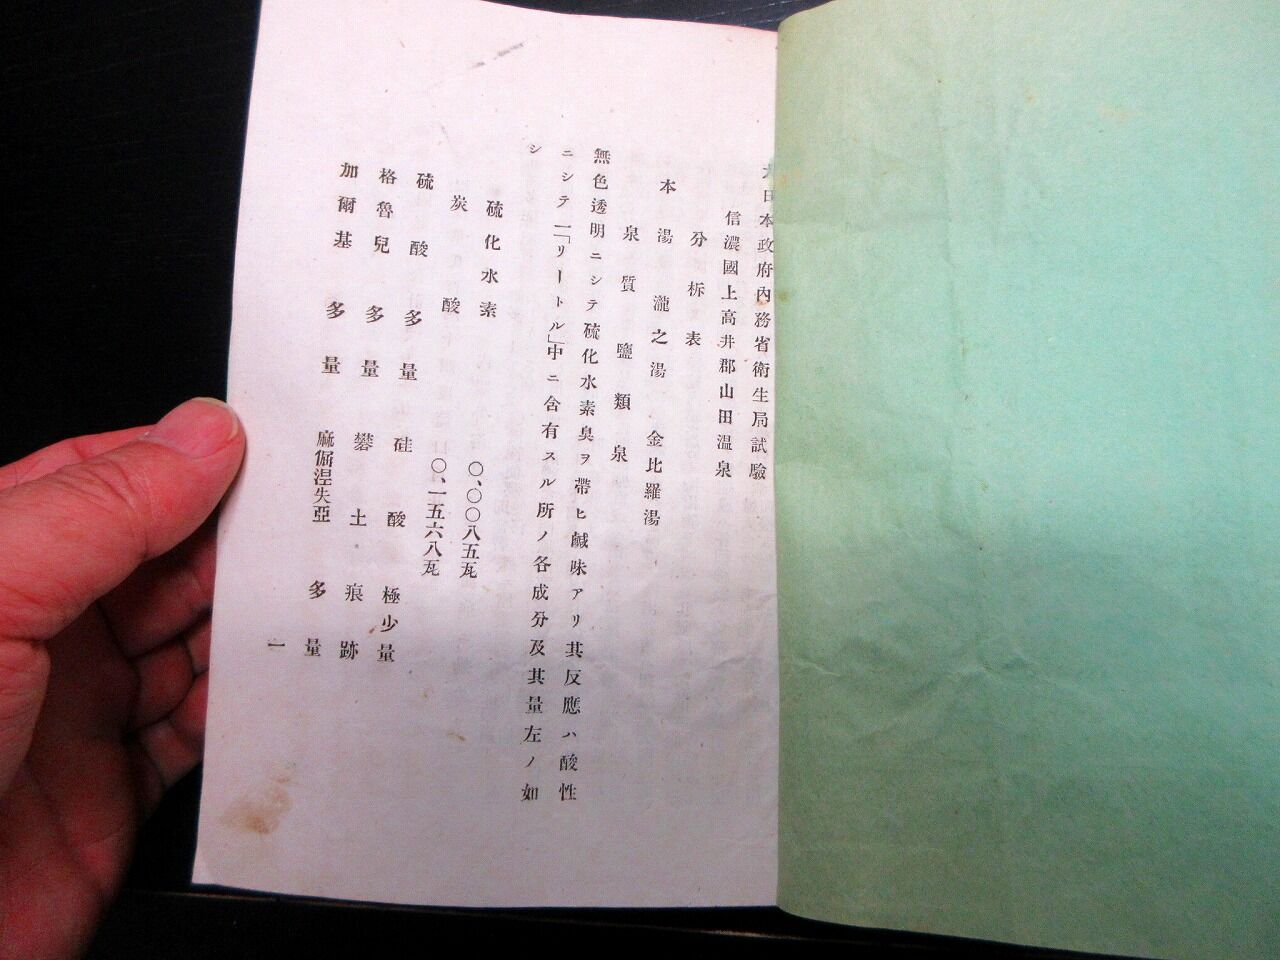 大日本政府內務省衛生局試驗
信濃國上高井郡山田温泉
分析表
本湯 瀧之湯 金比羅湯
泉質鹽類泉
無色透明ニシテ硫化水素臭ヲ帶ヒ鹹味アリ其反應ハ酸性
ニシテ一「リートル」中ニ含有スル所ノ各成分及其量左ノ如
シ
硫化水素 〇、〇〇八五瓦
炭酸 〇、一五六八瓦
硫酸 多量 硅酸 極少量
格魯兒 多量 礬土 痕跡
加爾基 多量 麻倔涅失亞 多量
一